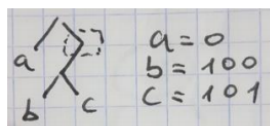 a
b
c
a = 0
b = 100
c = 101